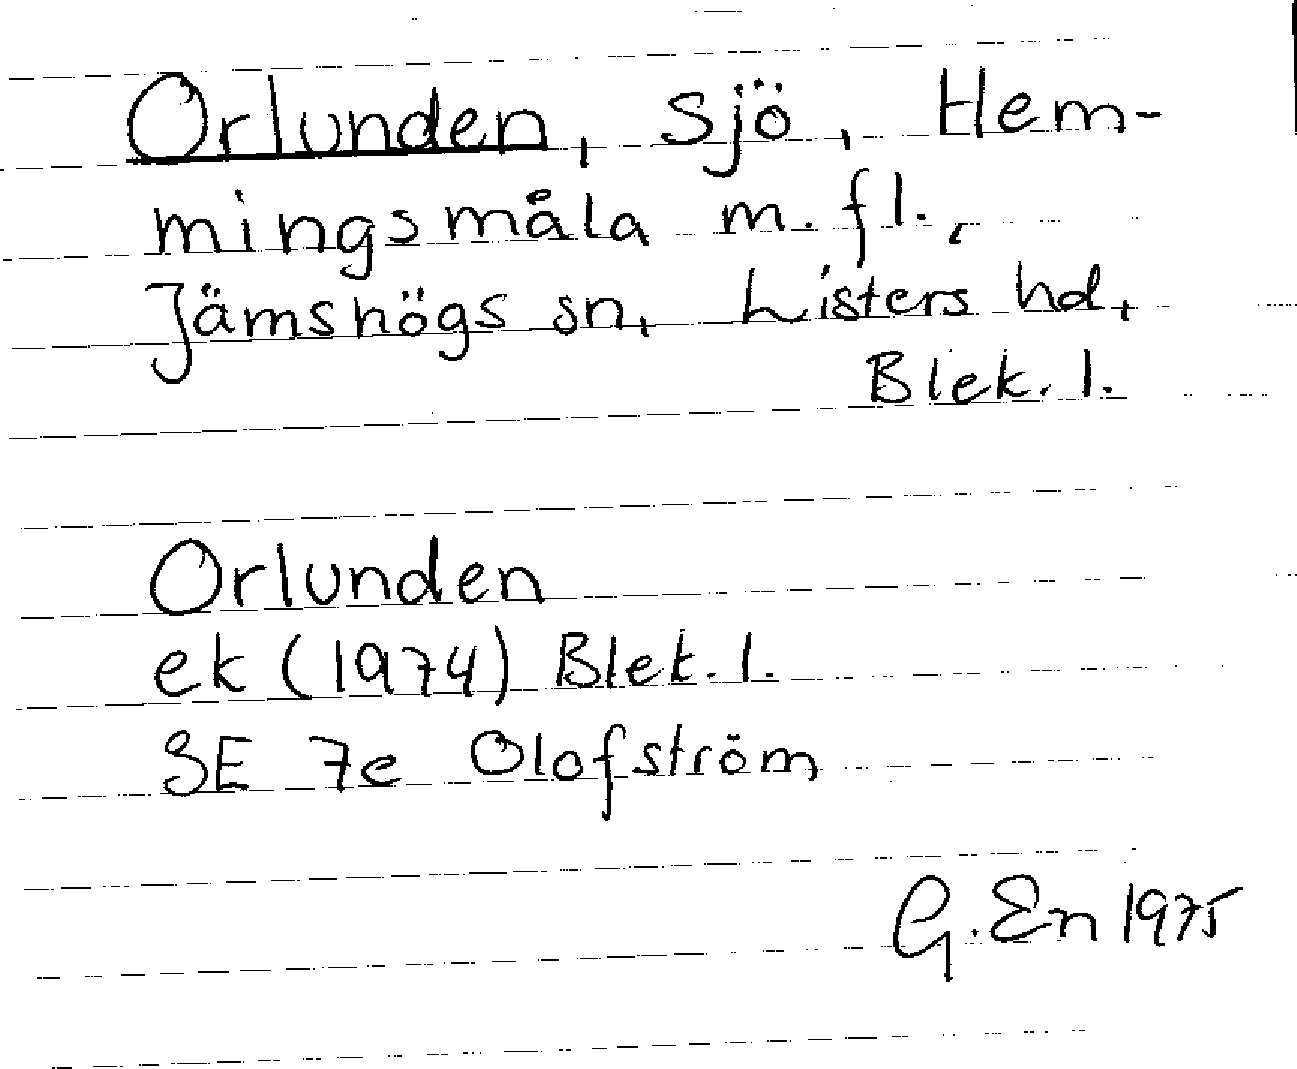 Orlunden, sjö, Hem-
mingsmåla m.fl.,
Jämshögs sn, Listers hd,
Blek. l.
Orlunden
ek (1974) Blek. l.
3E 7e Olofström
G. En 1975